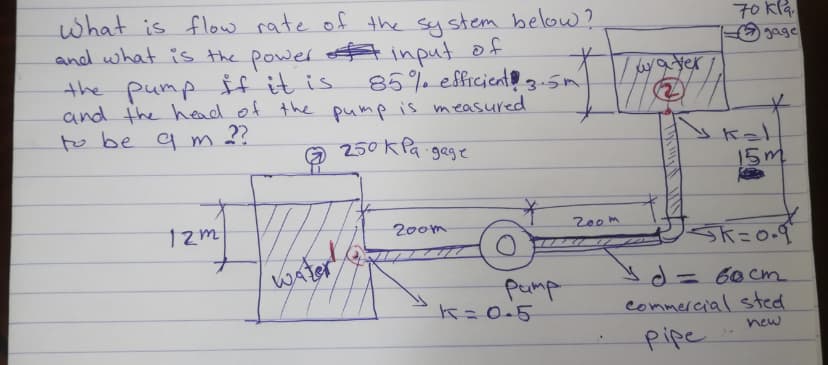 What is flow rate of the system below?
and what is the power input of
the pump if it is 85% efficient
and the head of the pump is measured
to be 9 m ??
70 KPa.
gage
3.5m
water
2
K=1
15m
250 KPa gage
12m
200m
200m
K=0.9
water
1
Pump
K=0.5
d = 60 cm
commercial steel
new
pipe